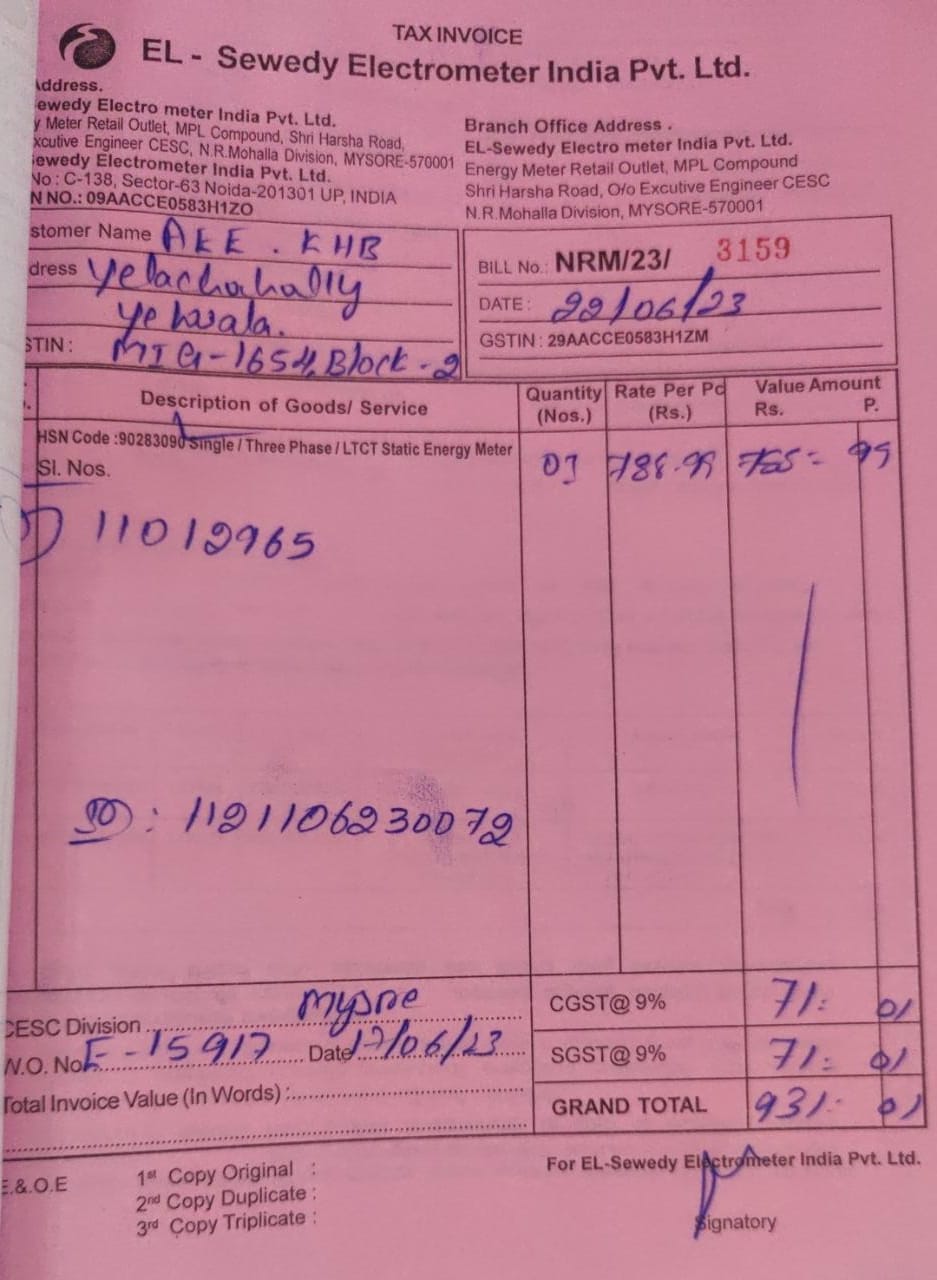 TAX INVOICE
EL - Sewedy Electrometer India Pvt. Ltd.
Address.
ewedy Electro meter India Pvt. Ltd.
y Meter Retail Outlet, MPL Compound, Shri Harsha Road,
xcutive Engineer CESC, N.R.Mohalla Division, MYSORE-570001
ewedy Electrometer India Pvt. Ltd.
No : C-138, Sector-63 Noida-201301 UP, INDIA
N NO.: 09AACCE0583H1ZO
Branch Office Address .
EL-Sewedy Electro meter India Pvt. Ltd.
Energy Meter Retail Outlet, MPL Compound
Shri Harsha Road, O/o Excutive Engineer CESC
N.R.Mohalla Division, MYSORE-570001
stomer Name AEE . KHB
dress Yelachahally
Yelwala.
STIN : MIG-1654, Block-2
BILL No.: NRM/23/ 3159
DATE : 22/06/23
GSTIN : 29AACCE0583H1ZM
Description of Goods/ Service Quantity (Nos.) Rate Per Pc (Rs.) Value Amount Rs. P.
HSN Code :90283090 Single / Three Phase / LTCT Static Energy Meter
Sl. Nos. 01 788.99 788= 99
1) 11012965
: 11211062300 72
CESC Division Mysore
W.O. No E-15917 Date 17/06/23
Total Invoice Value (In Words) :
CGST@ 9% 71: 01
SGST@ 9% 71: 01
GRAND TOTAL 931: 01
E.&.O.E
1st Copy Original :
2nd Copy Duplicate :
3rd Copy Triplicate :
For EL-Sewedy Electrometer India Pvt. Ltd.
Signatory